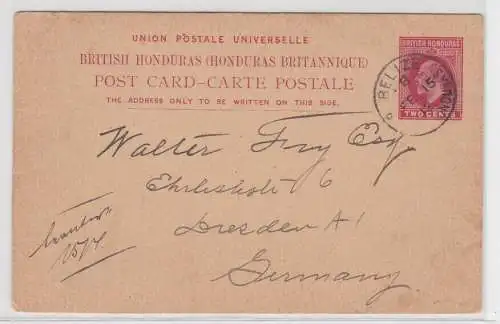 UNION POSTALE UNIVERSELLE
BRITISH HONDURAS (HONDURAS BRITANNIQUE)
POST CARD–CARTE POSTALE
THE ADDRESS ONLY TO BE WRITTEN ON THIS SIDE.
BRITISH HONDURAS
TWO CENTS
BELIZE
Walter Fry Esq.
Ehrlichstr 6
Dresden A1
Germany
15/4